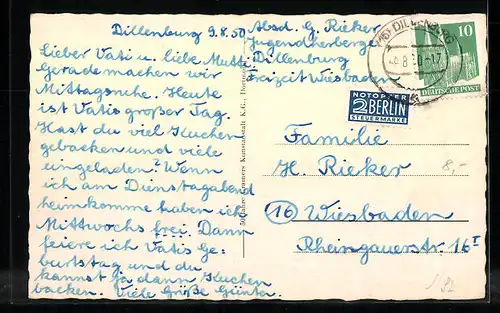 Dillenburg 9.8.50
Lieber Vati u. liebe Mutti
Gerade machen wir
Mittagsruhe. Heute
ist Vatis großer Tag.
Hast du viel Kuchen
gebacken und viele
eingeladen? Wenn
ich am Dienstagabend
heimkomme haben ich
Mittwochs frei. Dann
feiere ich Vatis Ge-
burtstag und du
kannst ja dann Kuchen
backen. Viele Grüße Günter.
Absd. G. Rieker
Jugendherberge
Dillenburg
Freizeit Wiesbaden
DILLENBURG
10
DEUTSCHE POST
NOTOPFER
2 BERLIN
STEUERMARKE
Familie
H. Rieker
8,-
16 Wiesbaden
Rheingauerstr. 16 I